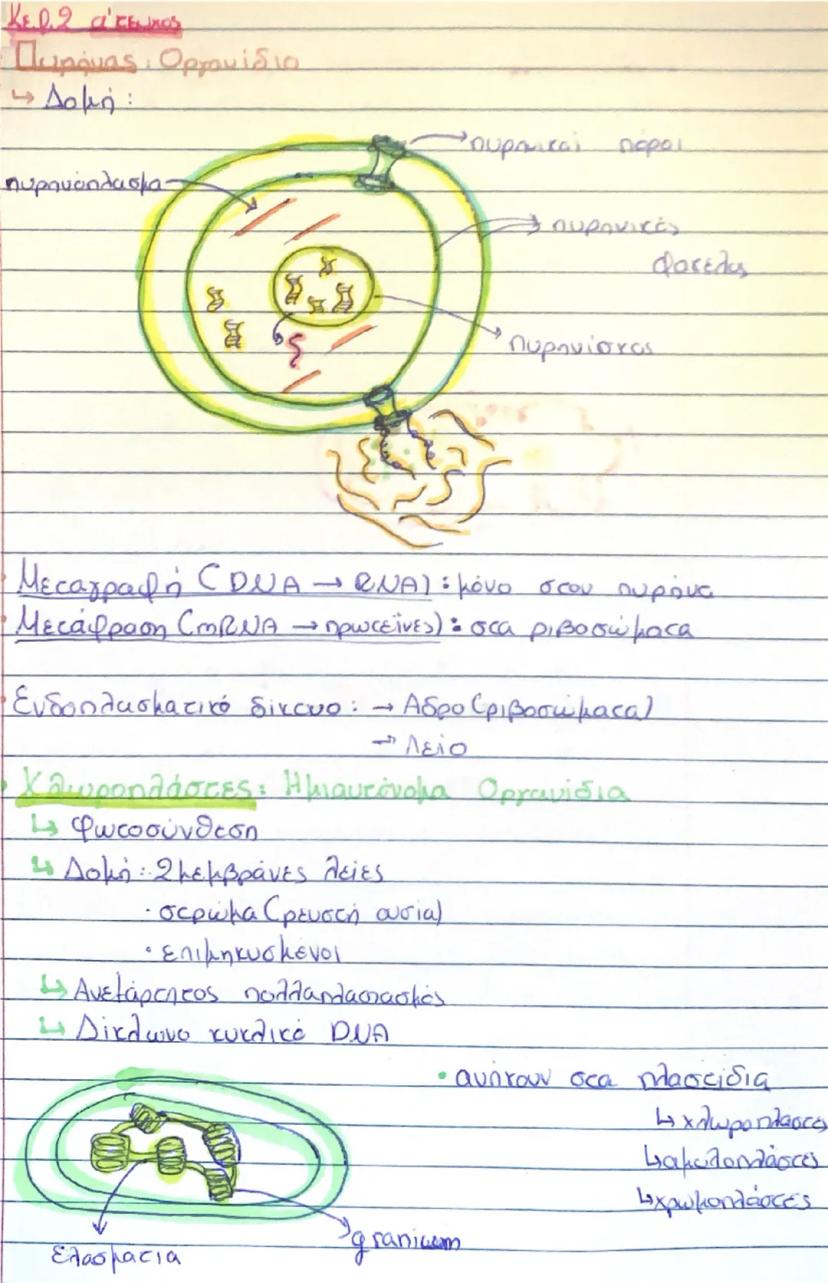 Κεφ.2 α' τεύχος
Πυρήνας: Οργανίδιο
↳ Δομή:
πυρηνικοί πόροι
πυρηνόπλασμα
πυρηνικές
φάκελος
πυρηνίσκος
Μεταγραφή (DNA → RNA): μόνο στον πυρήνα
Μετάφραση (mRNA → πρωτεΐνες): στα ριβοσώματα
Ενδοπλασματικό δίκτυο: → Αδρό (ριβοσώματα)
→ Λείο
Χλωροπλάστες: Ημιαυτόνομα Οργανίδια
↳ Φωτοσύνθεση
↳ Δομή: 2 μεμβράνες λείες
· στρώμα (ρευστή ουσία)
· επιμηκυσμένοι
↳ Ανεξάρτητος πολλαπλασιασμός
↳ Δίκλωνο κυκλικό DNA
• ανήκουν στα πλαστίδια
↳ χλωροπλάστες
↳ αμυλοπλάστες
↳ χρωμοπλάστες
ελασμάτια
granium